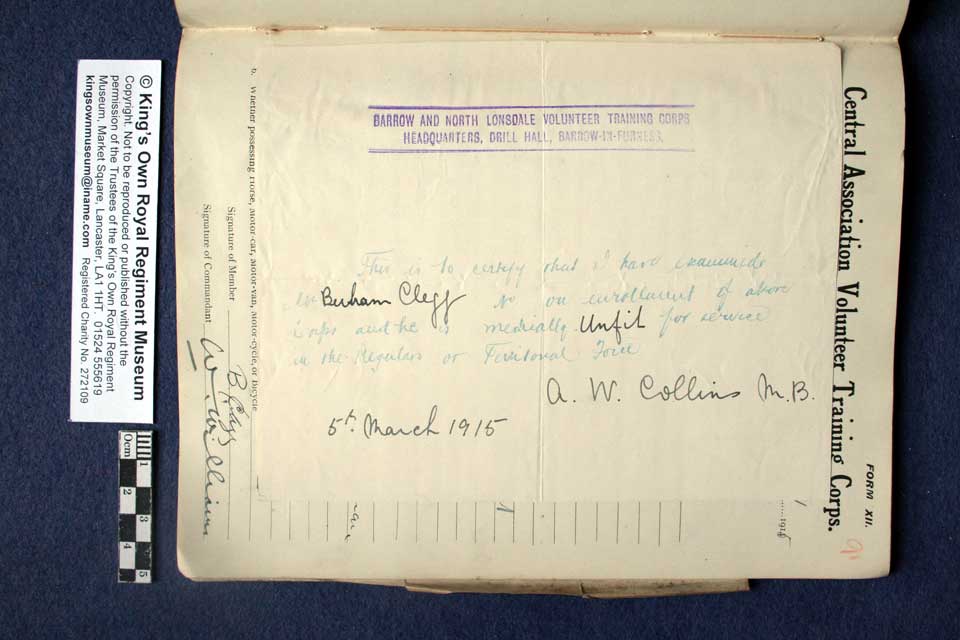 BARROW AND NORTH LONSDALE VOLUNTEER TRAINING CORPS
HEADQUARTERS, DRILL HALL, BARROW-IN-FURNESS.
This is to certify that I have examined
Mr Burham Clegg on enrollment of above
Corps and he is medically Unfit for service
in the Regulars or Territorial Force
A. W. Collins M.B.
5th March 1915
Central Association Volunteer Training Corps.
FORM XII.
6. Whether possessing Horse, Motor-car, Motor-van, Motor-cycle, or Bicycle
Signature of Member B. Clegg
Signature of Commandant W. Williams
© King's Own Royal Regiment Museum
Copyright. Not to be reproduced or published without the
permission of the Trustees of the King's Own Royal Regiment
Museum, Market Square, Lancaster, LA1 1HT. 01524 555619
kingsownmuseum@iname.com Registered Charity No. 272109
0cm 1 2 3 4 5